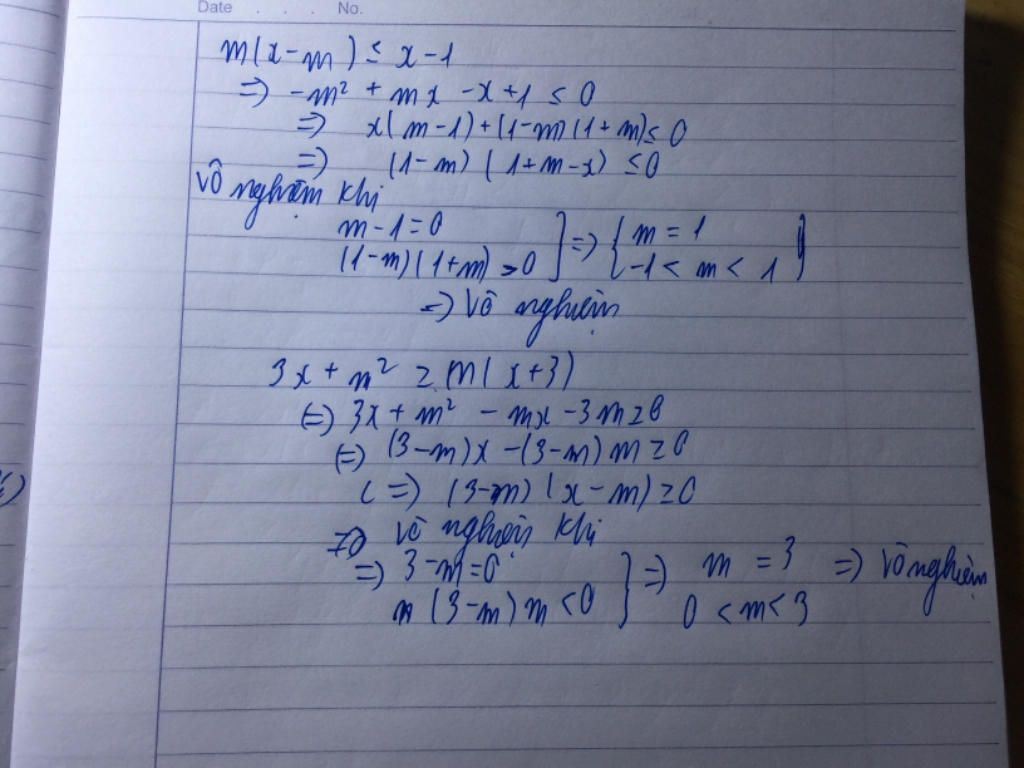 Date . . . No.
m(x-m) ≤ x-1
=> -m² + mx -x+1 ≤ 0
=> x(m-1)+(1-m)(1+m)≤ 0
=> (1-m)(1+m-x) ≤0
Vô nghiệm khi
m-1=0
(1-m)(1+m) >0 ] => { m = 1
-1< m < 1 }
=> Vô nghiệm
3x + m² ≥ m(x+3)
(=) 3x + m² - mx -3m≥0
(=) (3-m)x -(3-m)m ≥0
(=>) (3-m)(x-m) ≥0
vô nghiệm khi
=> 3-m=0
(3-m)m <0 } => m = 3 => Vô nghiệm
0 <m< 3